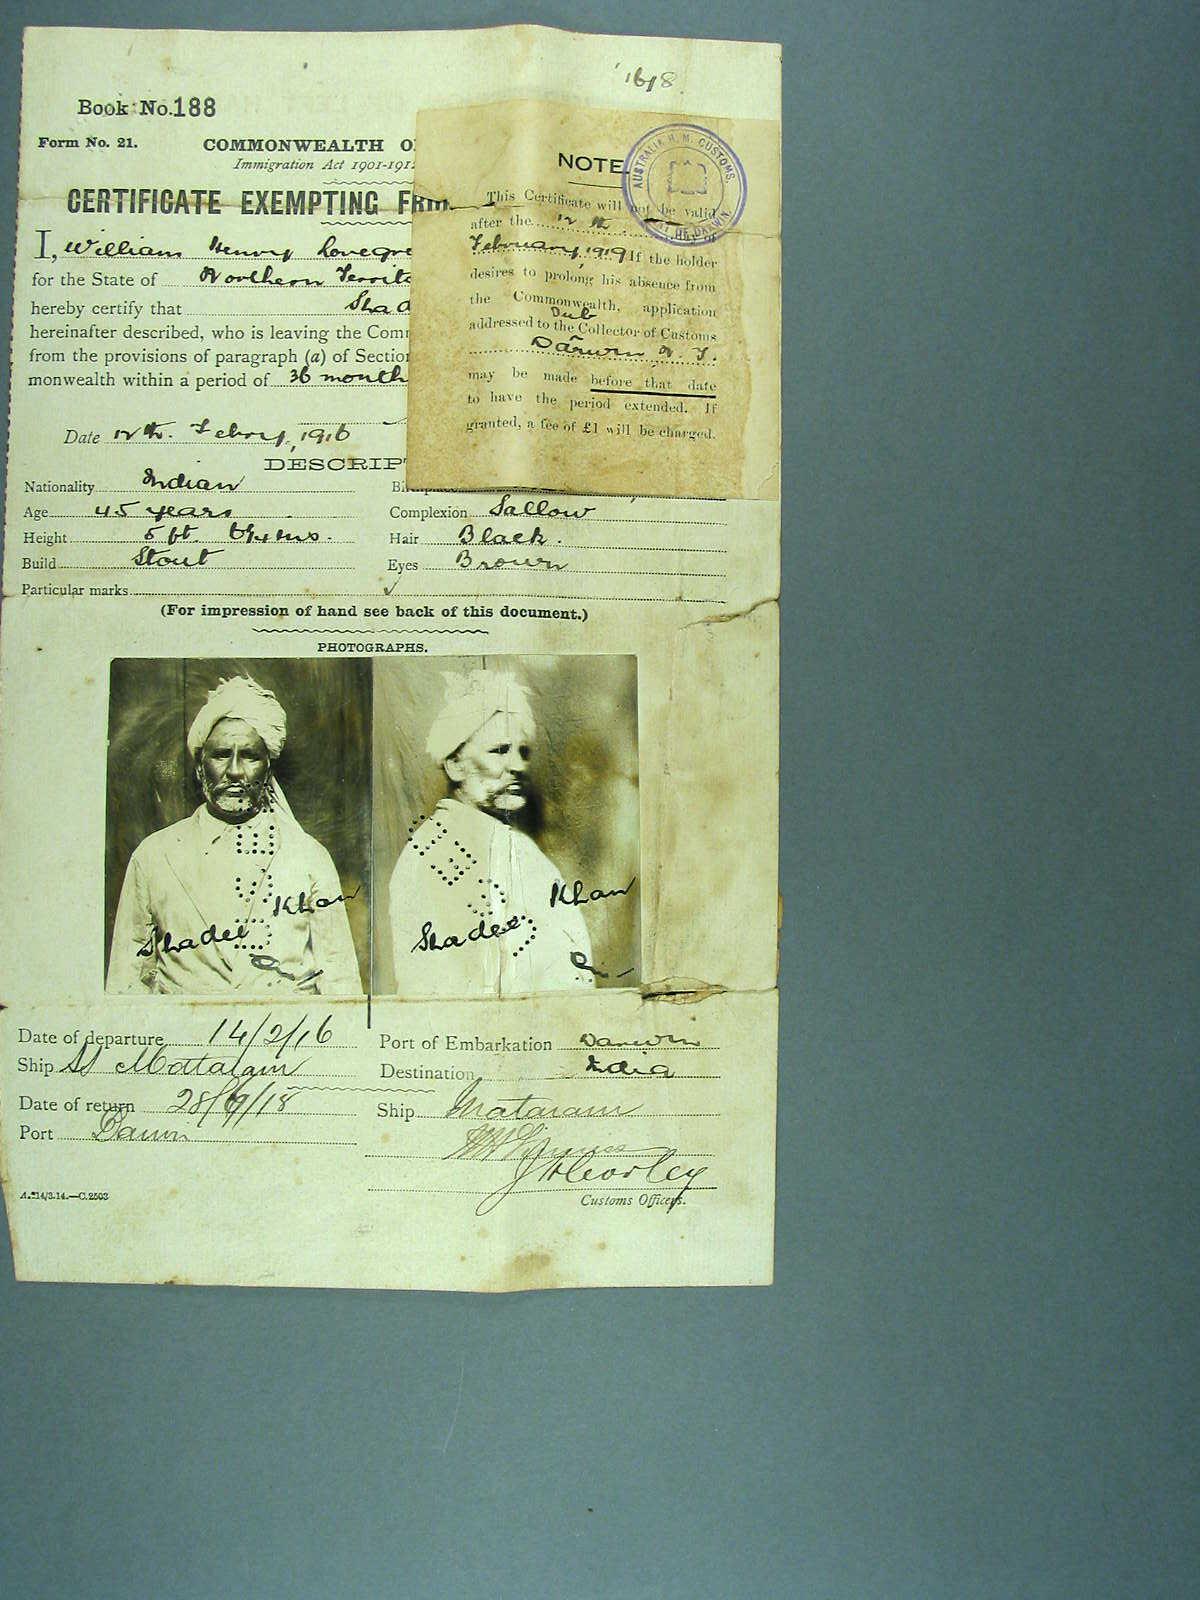 1618
Book No. 188
Form No. 21.
COMMONWEALTH O
Immigration Act 1901-1912
CERTIFICATE EXEMPTING FRO
I, William Henry Lovegre
for the State of Northern Territo
hereby certify that Shad
hereinafter described, who is leaving the Com
from the provisions of paragraph (a) of Section
monwealth within a period of 36 month
Date 12th. Febry. 1916
NOTE
AUSTRALIA H. M. CUSTOMS. DARWIN.
This Certificate will not be valid
after the 12 th. day of
February, 1919 If the holder
desires to prolong his absence from
the Commonwealth, application
Sub
addressed to the Collector of Customs
Darwin N. T.
may be made before that date
to have the period extended. If
granted, a fee of £1 will be charged.
DESCRIPT
Nationality Indian
Age 45 years Complexion Sallow
Height 5 ft. 6¼ ins. Hair Black.
Build Stout Eyes Brown
Particular marks
(For impression of hand see back of this document.)
PHOTOGRAPHS.
Shadee Khan
Shadee Khan
Date of departure 14/2/16 Port of Embarkation Darwin
Ship SS Mattaram Destination India
Date of return 28/9/18 Ship Mataram
Port Darwin
Customs Officers.
A.214/3.14.—C.2503